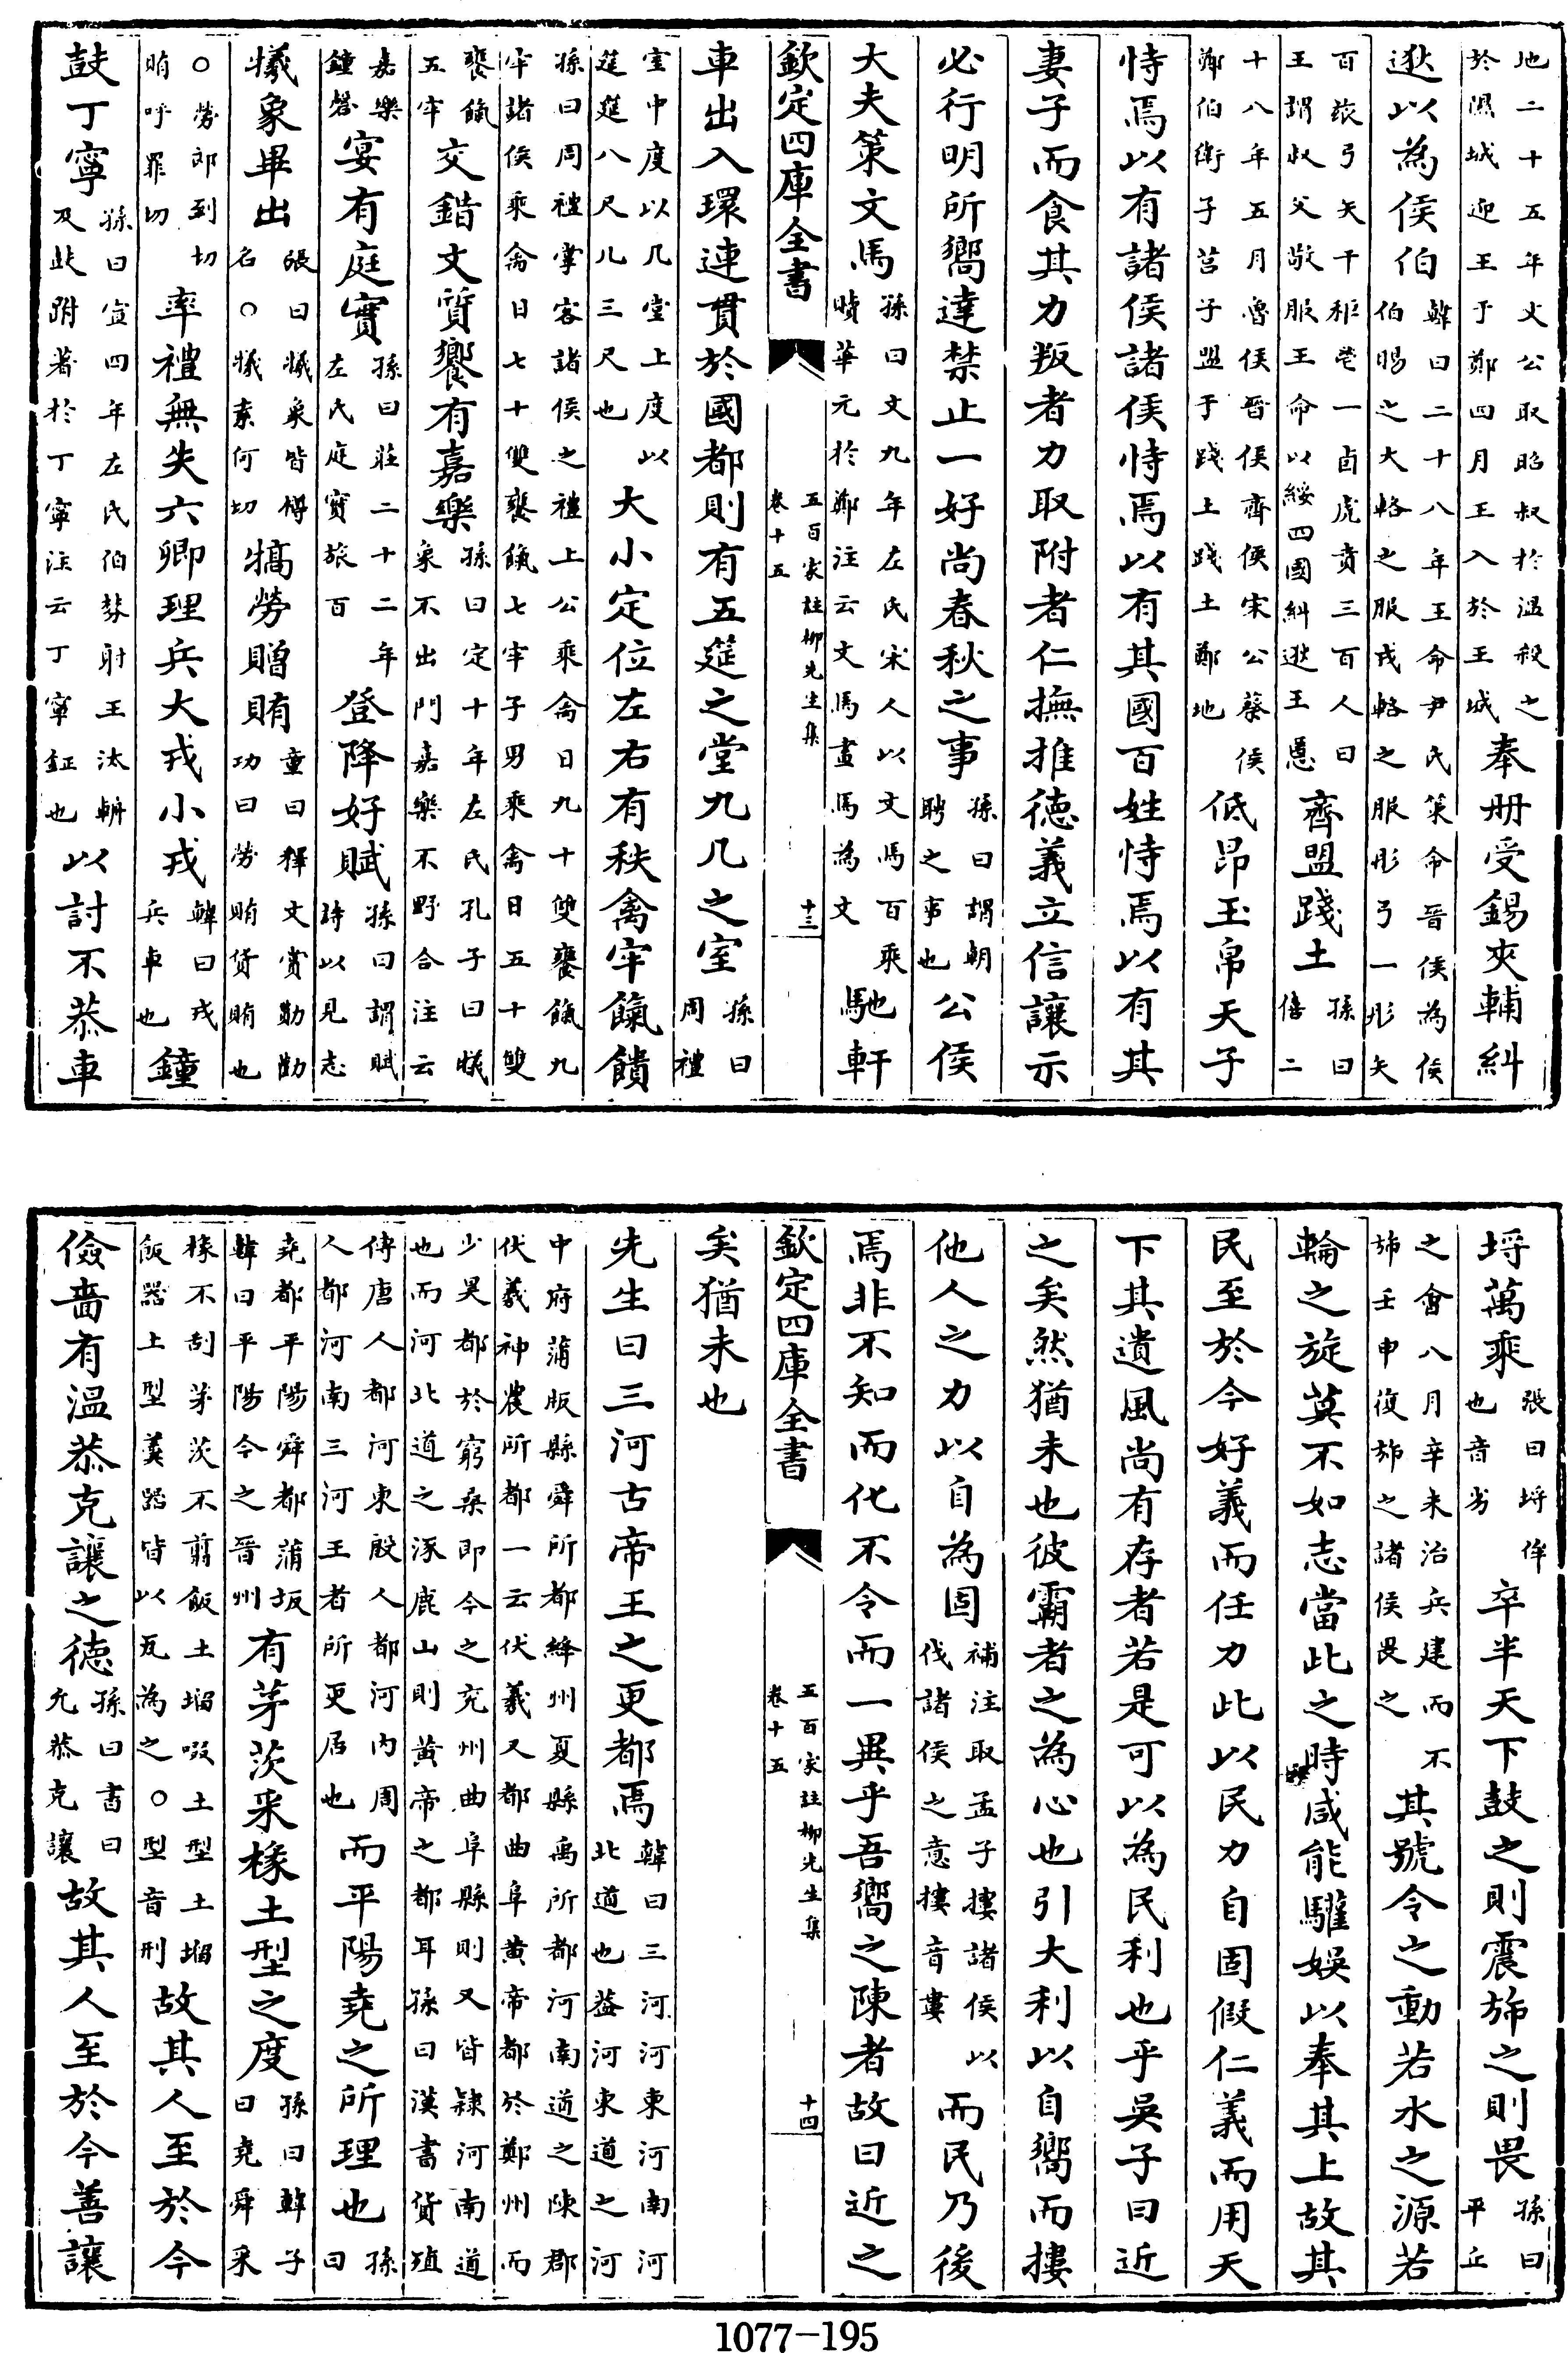 地二十五年文公取昭叔於温殺之
於隰城迎王于鄭四月王入於王城奉册受錫夾輔糾
逖以為侯伯韓曰二十八年王命尹氏策命晉侯為侯
伯賜之大輅之服戎輅之服彤弓一彤矢
百玈弓矢千秬鬯一卣虎賁三百人曰
王謂叔父敬服王命以綏四國糾逖王慝齊盟踐土孫曰
僖二
十八年五月魯侯晉侯齊侯宋公蔡侯
鄭伯衛子莒子盟于踐土踐土鄭地低昂玉帛天子
恃焉以有諸侯諸侯恃焉以有其國百姓恃焉以有其
妻子而食其力叛者力取附者仁撫推德義立信讓示
必行明所嚮達禁止一好尚春秋之事孫曰謂朝
聘之事也公侯
大夫策文馬孫曰文九年左氏宋人以文馬百乘
贖華元於鄭注云文馬畫馬為文馳軒
欽定四庫全書
五百家註柳先生集
卷十五
十三
車出入環連貫於國都則有五筵之堂九几之室孫曰
周禮
室中度以几堂上度以
筵筵八尺几三尺也大小定位左右有秩禽牢餼饋
孫曰周禮掌客諸侯之禮上公乘禽日九十雙饔餼九
牢諸侯乘禽日七十雙饔餼七牢子男乘禽日五十雙
饔餼
五牢交錯文質饗有嘉樂孫曰定十年左氏孔子曰犧
象不出門嘉樂不野合注云
嘉樂
鐘磬宴有庭實孫曰莊二十二年
左氏庭實旅百登降好賦孫曰謂賦
詩以見志
犧象畢出張曰犧象皆樽
名○犧素何切犒勞贈賄童曰釋文賞勛勸
功曰勞賄貨賄也
○勞郎到切
賄呼罪切率禮無失六卿理兵大戎小戎韓曰戎
兵車也鐘
鼓丁寧孫曰宣四年左氏伯棼射王汰輈
及鼓跗著於丁寧注云丁寧鉦也以討不恭車
埒萬乘張曰埒侔
也音劣卒半天下鼓之則震斾之則畏孫曰
平丘
之會八月辛未治兵建而不
斾壬申復斾之諸侯畏之其號令之動若水之源若
輪之旋莫不如志當此之時咸能驩娛以奉其上故其
民至於今好義而任力此以民力自固假仁義而用天
下其遺風尚有存者若是可以為民利也乎吳子曰近
之矣然猶未也彼霸者之為心也引大利以自嚮而摟
他人之力以自為固補注取孟子摟諸侯以
伐諸侯之意摟音婁而民乃後
焉非不知而化不令而一異乎吾嚮之陳者故曰近之
欽定四庫全書
五百家註柳先生集
卷十五
十四
矣猶未也
先生曰三河古帝王之更都焉韓曰三河河東河南河
北道也葢河東道之河
中府蒲阪縣舜所都絳州夏縣禹所都河南道之陳郡
伏羲神農所都一云伏羲又都曲阜黃帝都於鄭州而
少昊都於窮桑即今之兖州曲阜縣則又皆隸河南道
也而河北道之涿鹿山則黃帝之都耳孫曰漢書貨殖
傳唐人都河東殷人都河內周
人都河南三河王者所更居也而平陽堯之所理也孫
曰
堯都平陽舜都蒲坂
韓曰平陽今之晉州有茅茨采椽土型之度孫曰韓子
曰堯舜采
椽不刮茅茨不翦飯土塯啜土型土塯
飯器土型羹器皆以瓦為之○型音刑故其人至於今
儉嗇有溫恭克讓之德孫曰書曰
允恭克讓故其人至於今善讓
1077-195